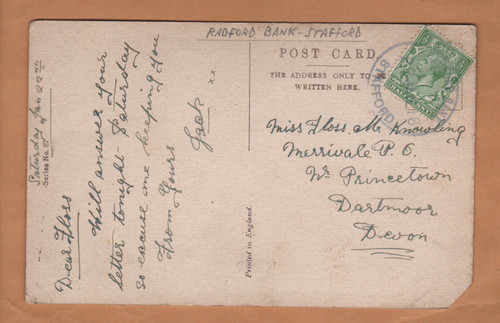 RADFORD BANK-STAFFORD
POST CARD
THE ADDRESS ONLY TO BE
WRITTEN HERE.
Saturday Jan 22nd
Series No.
Dear Floss
Will answer your
letter tonight - Saturday
so excuse me keeping you
From Yours
Jack
xx
Printed in England.
Miss Floss M. Knowling
Merrivale P.O.
Nr. Princetown
Dartmoor
Devon
STAFFORD